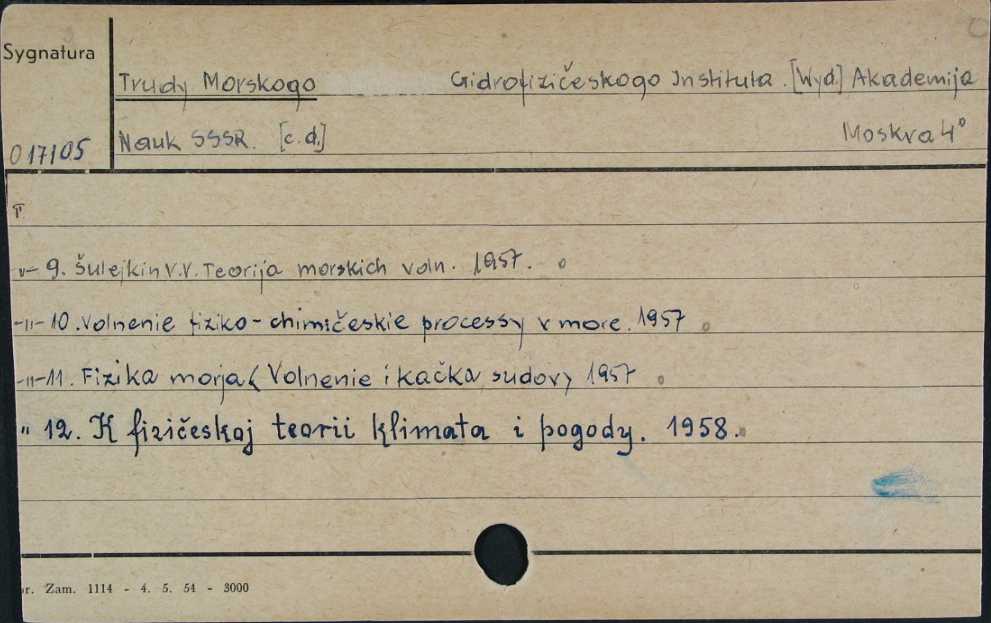 Sygnatura
Trudy Morskogo Gidrofizičeskogo Instituta. [Wyd.] Akademija
017105 Nauk SSSR. [c.d.] Moskva 4°
T
-"- 9. Šulejkin V.V. Teorija morskich voln. 1957.
-"- 10. Volnenie fiziko-chimičeskie processy v more. 1957
-"- 11. Fizika morja < Volnenie i kačka sudov > 1957
" 12. K fizičeskoj teorii klimata i pogody. 1958.
r. Zam. 1114 - 4. 5. 54 - 3000